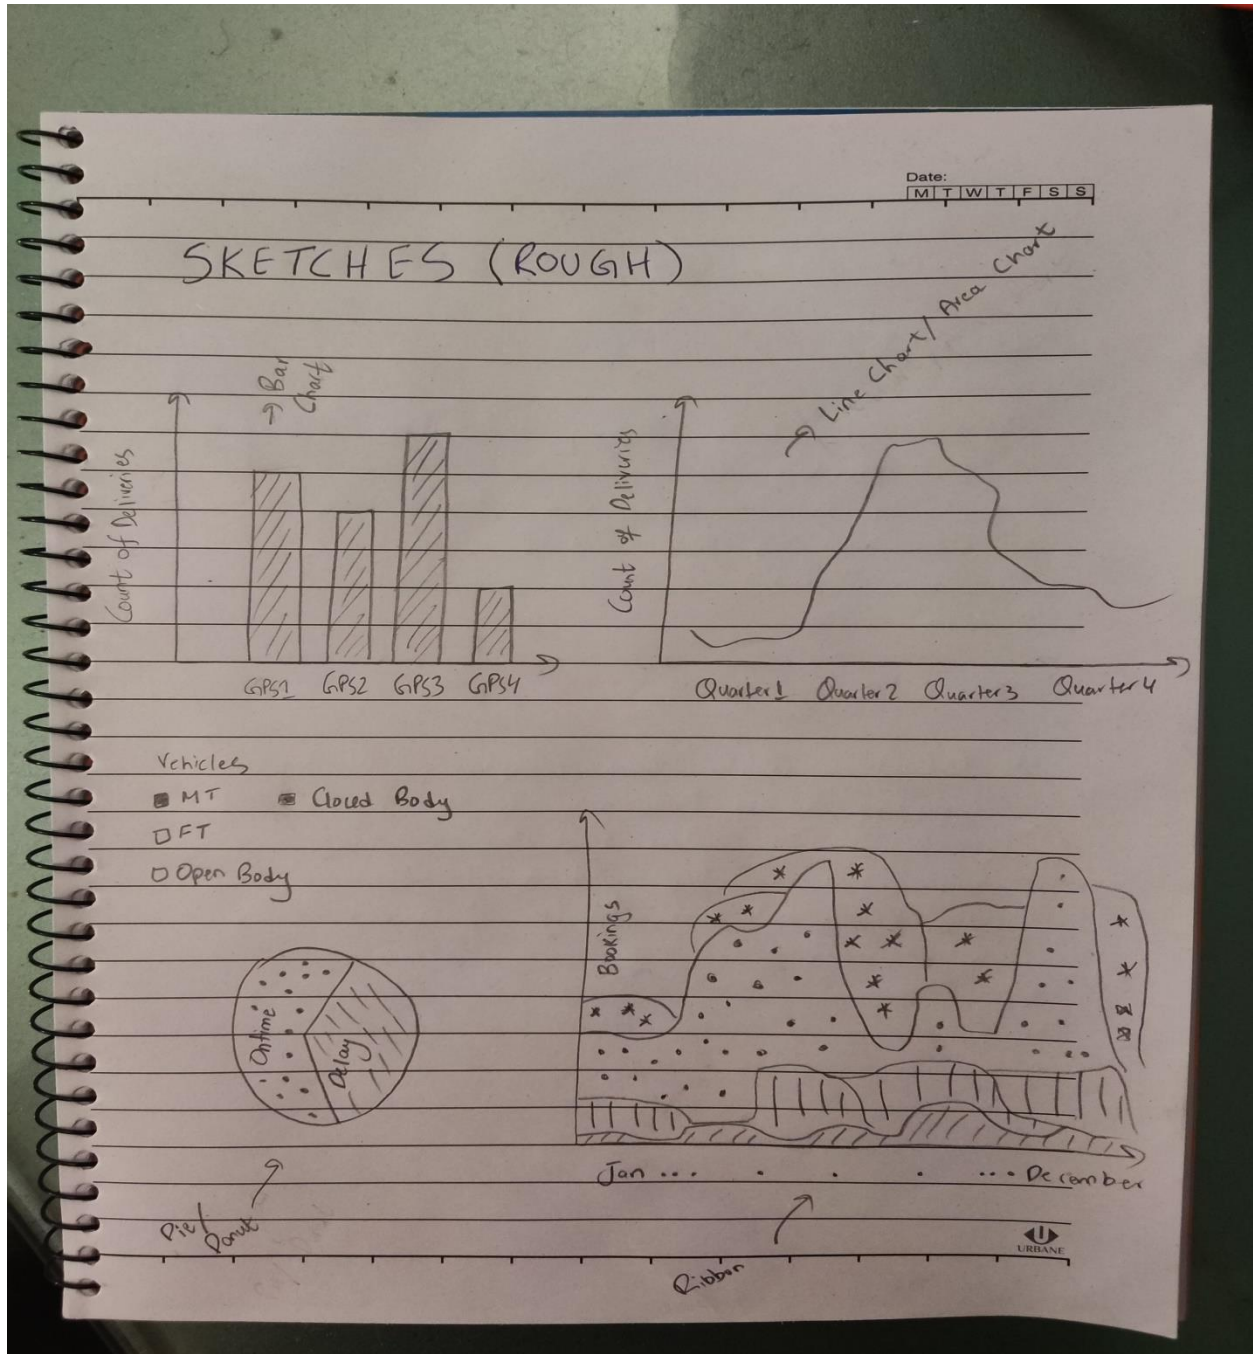 Date:
M T W T F S S
SKETCHES (ROUGH)
→ Bar
Chart
Count of Deliveries
GPS1 GPS2 GPS3 GPS4
→ Line Chart / Area Chart
Count of Deliveries
Quarter 1 Quarter 2 Quarter 3 Quarter 4
Vehicles
MT Closed Body
FT
Open Body
Ontime
Delay
Pie/
Donut
Bookings
Jan ... . . . ... December
Ribbon
URBANE